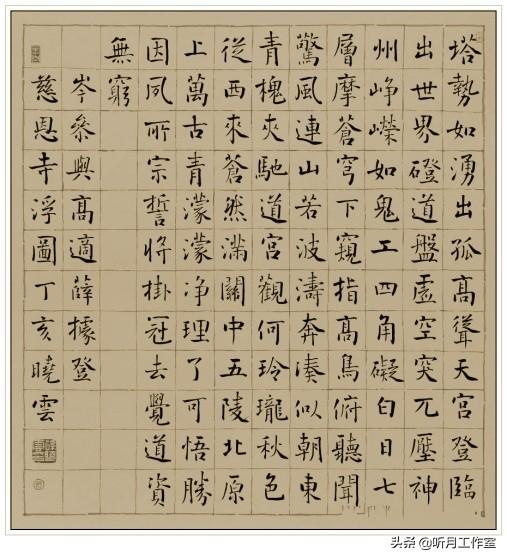 塔勢如湧出孤高聳天宮登臨
出世界磴道盤虛空突兀壓神
州崢嶸如鬼工四角礙白日七
層摩蒼穹下窺指高鳥俯聽聞
驚風連山若波濤奔湊似朝東
青槐夾馳道宮觀何玲瓏秋色
從西來蒼然滿關中五陵北原
上萬古青濛濛净理了可悟勝
因夙所宗誓將掛冠去覺道資
無窮
岑參與高適薛據登
慈恩寺浮圖丁亥曉雲
头条 @听月工作室